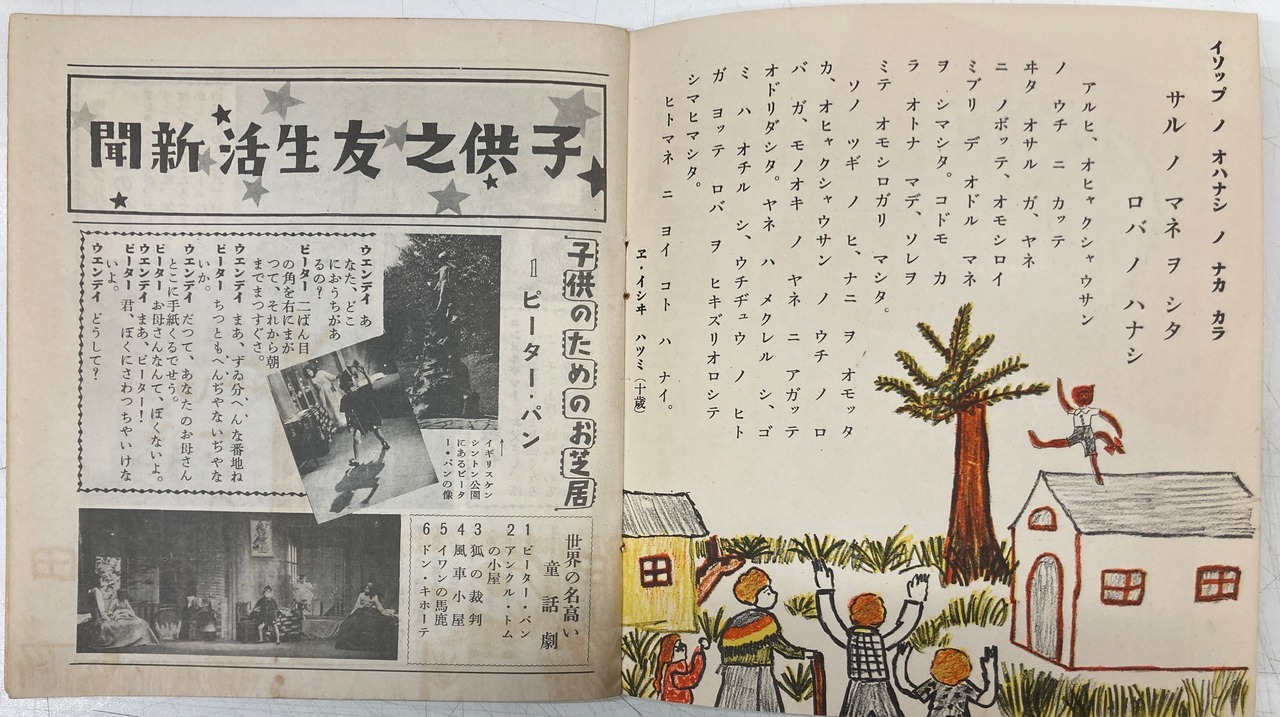 イソップ ノ オハナシ ノ ナカ カラ
サル ノ マネヲ シタ
ロバ ノ ハナシ
アルヒ、オヒャクシャウサン
ノ ウチ ニ カッテ
ヰタ オサル ガ、ヤネ
ニ ノボッテ、オモシロイ
ミブリ デ オドル マネ
ヲ シマシタ。コドモ カ
ラ オトナ マデ、ソレヲ
ミテ オモシロガリ マシタ。
ソノ ツギ ノ ヒ、ナニ ヲ オモッタ
カ、オヒャクシャウサン ノ ウチ ノ ロ
バ ガ、モノオキ ノ ヤネ ニ アガッテ
オドリダシタ。ヤネ ハ メクレル シ、ゴ
ミ ハ オチル シ、ウチヂュウ ノ ヒト
ガ ヨッテ ロバ ヲ ヒキズリオロシテ
シマヒマシタ。
ヒトマネ ニ ヨイ コト ハ ナイ。
ヱ・イシヰ ハツミ(十歳)
子供之友生活新聞
子供のためのお芝居
1 ピーター・パン
イギリスケン
シントン公園
にあるピータ
ー・パンの像
ウェンデイ あ
なた、どこ
におうちがあ
るの?
ピーター 二ばん目
の角を右にまが
つて、それから朝
までまつすぐさ。
ウェンデイ まあ、ずゐ分へんな番地ね
ピーター ちつともへんぢやないぢやな
いか。
ウェンデイ だつて、あなたのお母さん
とこに手紙くるでせう。
ピーター お母さんなんて、ぼくないよ。
ウェンデイ まあ、ピーター!
ピーター 君、ぼくにさわつちやいけな
いよ。
ウェンデイ どうして?
世界の名高い
童話劇
1 ピーター・パン
2 アンクル・トム
の小屋
3 狐の裁判
4 風車小屋
5 イワンの馬鹿
6 ドン・キホーテ